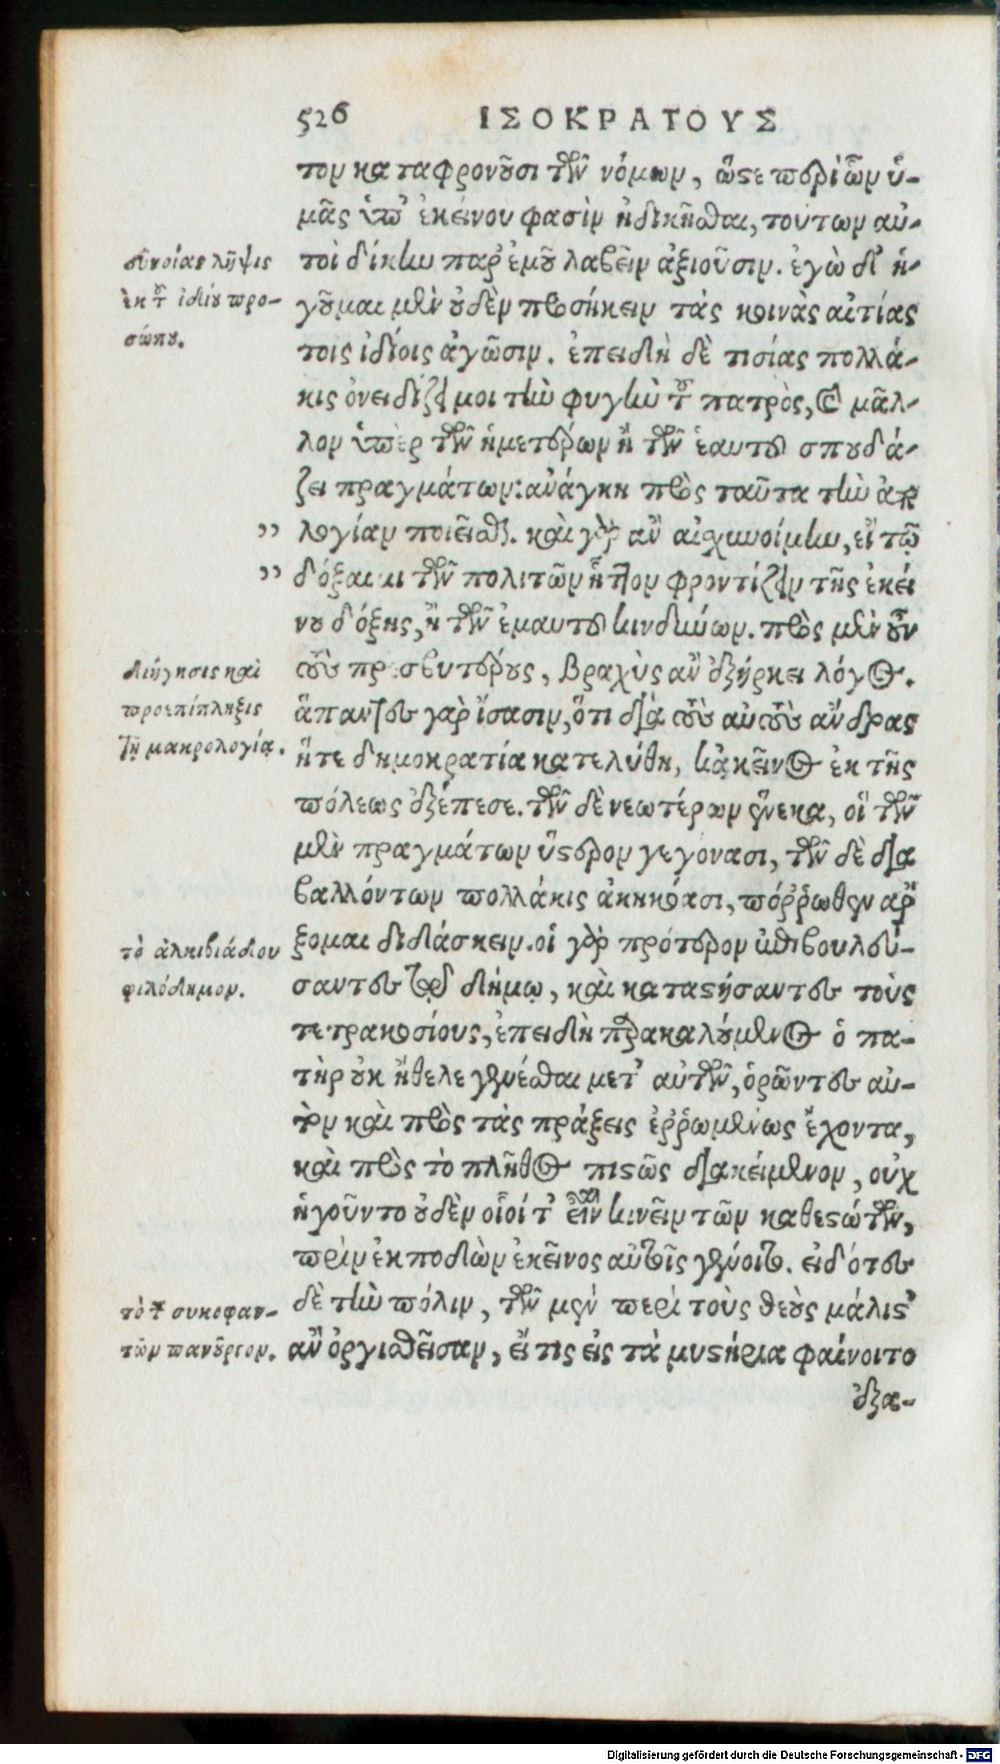 526 ΙΣΟΚΡΑΤΟΥΣ
τον καταφρονοῦσι τῶν νόμων, ὥστε περὶ ὧν ὑ-
μᾶς ὑπ' ἐκείνου φασὶν ἠδικῆσθαι, τούτων αὐ-
τοὶ δίκην παρ' ἐμοῦ λαβεῖν ἀξιοῦσιν. ἐγὼ δ' ἡ-
γοῦμαι μὲν οὐδὲν προσήκειν τὰς κοινὰς αἰτίας
τοῖς ἰδίοις ἀγῶσιν. ἐπειδὴ δὲ τισίας πολλά-
κις ὀνειδίζει μοι τὴν φυγὴν τοῦ πατρὸς, καὶ μᾶλ-
λον ὑπὲρ τῶν ἡμετέρων ἢ τῶν ἑαυτοῦ σπουδά-
ζει πραγμάτων: ἀνάγκη πρὸς ταῦτα τὴν ἀπο
„ λογίαν ποιεῖσθαι. καὶ γὰρ ἂν αἰσχυνοίμην, εἴ τῳ
„ δόξαιμι τῶν πολιτῶν ἧττον φροντίζειν τῆς ἐκεί
νου δόξης, ἢ τῶν ἐμαυτοῦ κινδύνων. πρὸς μὲν οὖν
τοὺς πρεσβυτέρους, βραχὺς ἂν ἐξήρκει λόγος.
ἅπαντες γὰρ ἴσασιν, ὅτι διὰ τοὺς αὐτοὺς ἄνδρας
ἥτε δημοκρατία κατελύθη, κἀκεῖνος ἐκ τῆς
πόλεως ἐξέπεσε. τῶν δὲ νεωτέρων ἕνεκα, οἳ τῶν
μὲν πραγμάτων ὕστερον γεγόνασι, τῶν δὲ δια
βαλλόντων πολλάκις ἀκηκόασι, πόῤῥωθεν ἄρ
ξομαι διδάσκειν. οἱ γὰρ πρότερον ἐπιβουλεύ-
σαντες τῷ δήμῳ, καὶ καταστήσαντες τοὺς
τετρακοσίους, ἐπειδὴ παρακαλούμενος ὁ πα-
τὴρ οὐκ ἤθελε γενέσθαι μετ' αὐτῶν, ὁρῶντες αὐ-
τὸν καὶ πρὸς τὰς πράξεις ἐῤῥωμένως ἔχοντα,
καὶ πρὸς τὸ πλῆθος πιστῶς διακείμενον, οὐχ
ἡγοῦντο οὐδὲν οἷοί τ' εἶναι κινεῖν τῶν καθεστώτων,
πρὶν ἐκποδὼν ἐκεῖνος αὐτοῖς γένοιτο. εἰδότες
δὲ τὴν πόλιν, τῶν μὲν περὶ τοὺς θεοὺς μάλιστ'
ἂν ὀργισθεῖσαν, εἴ τις εἰς τὰ μυστήρια φαίνοιτο
ἐξα-
συνοίας λῆψις
ἐκ τοῦ ἰδίου προ-
σώπου.
Διήγησις καὶ
προεπίπληξις
τῇ μακρολογίᾳ.
τὸ ἀλκιβιάδου
φιλόδημον.
τὸ τῶν συκοφαν-
τῶν πανοῦργον.
Digitalisierung gefördert durch die Deutsche Forschungsgemeinschaft - DFG